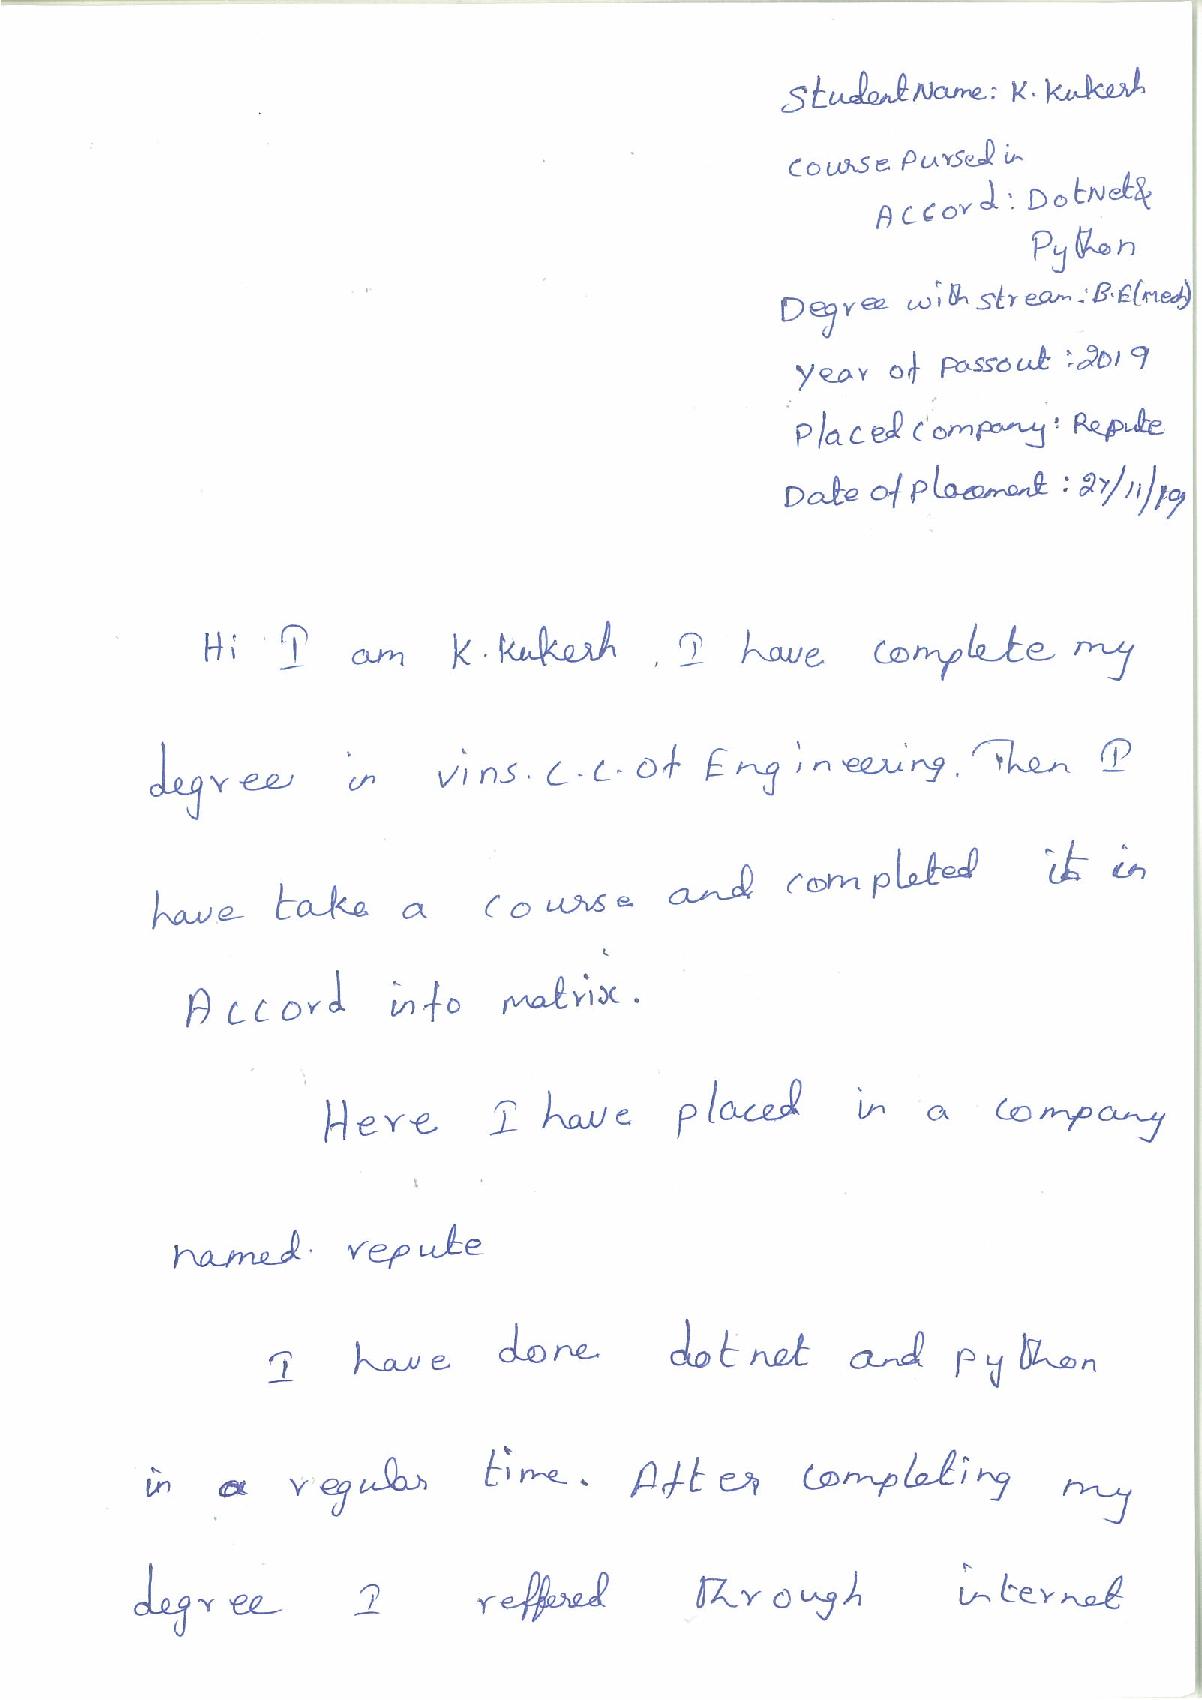 Student Name: K. Kukesh
Course Pursed in
Accord: DotNet &
Python
Degree with stream: B.E(mech)
Year of Passout: 2019
Placed Company: Repute
Date of Placement: 27/11/19
Hi I am K. Kukesh, I have complete my
degree in vins. C.C. of Engineering. Then I
have take a course and completed it in
Accord info matrix.
Here I have placed in a company
named. repute
I have done dotnet and python
in a regular time. After completing my
degree I reffered through internet